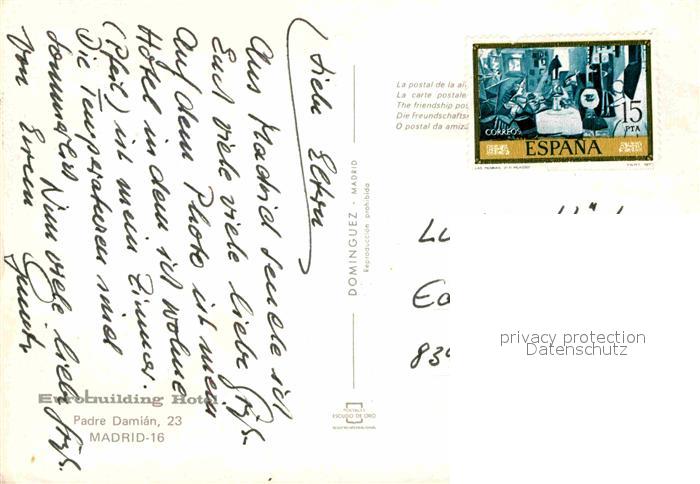 Liebe Eltern
Aus Madrid sende ich
Euch viele viele liebe Grüße.
Auf dem Photo ist mein
Hotel in dem ich wohne
(Pfeil) ist mein Zimmer.
Die Temperaturen sind
sommerlich Nun viele liebe Grüße
von Eurem
Eurobuilding Hotel
Padre Damián, 23
MADRID-16
DOMINGUEZ - MADRID
Reproducción prohibida
POSTALES
ESCUDO DE ORO
La postal de la
La carte postale
The friendship
Die freundschafts
O postal da
CORREOS
15
PTA
ESPAÑA
839
privacy protection
Datenschutz